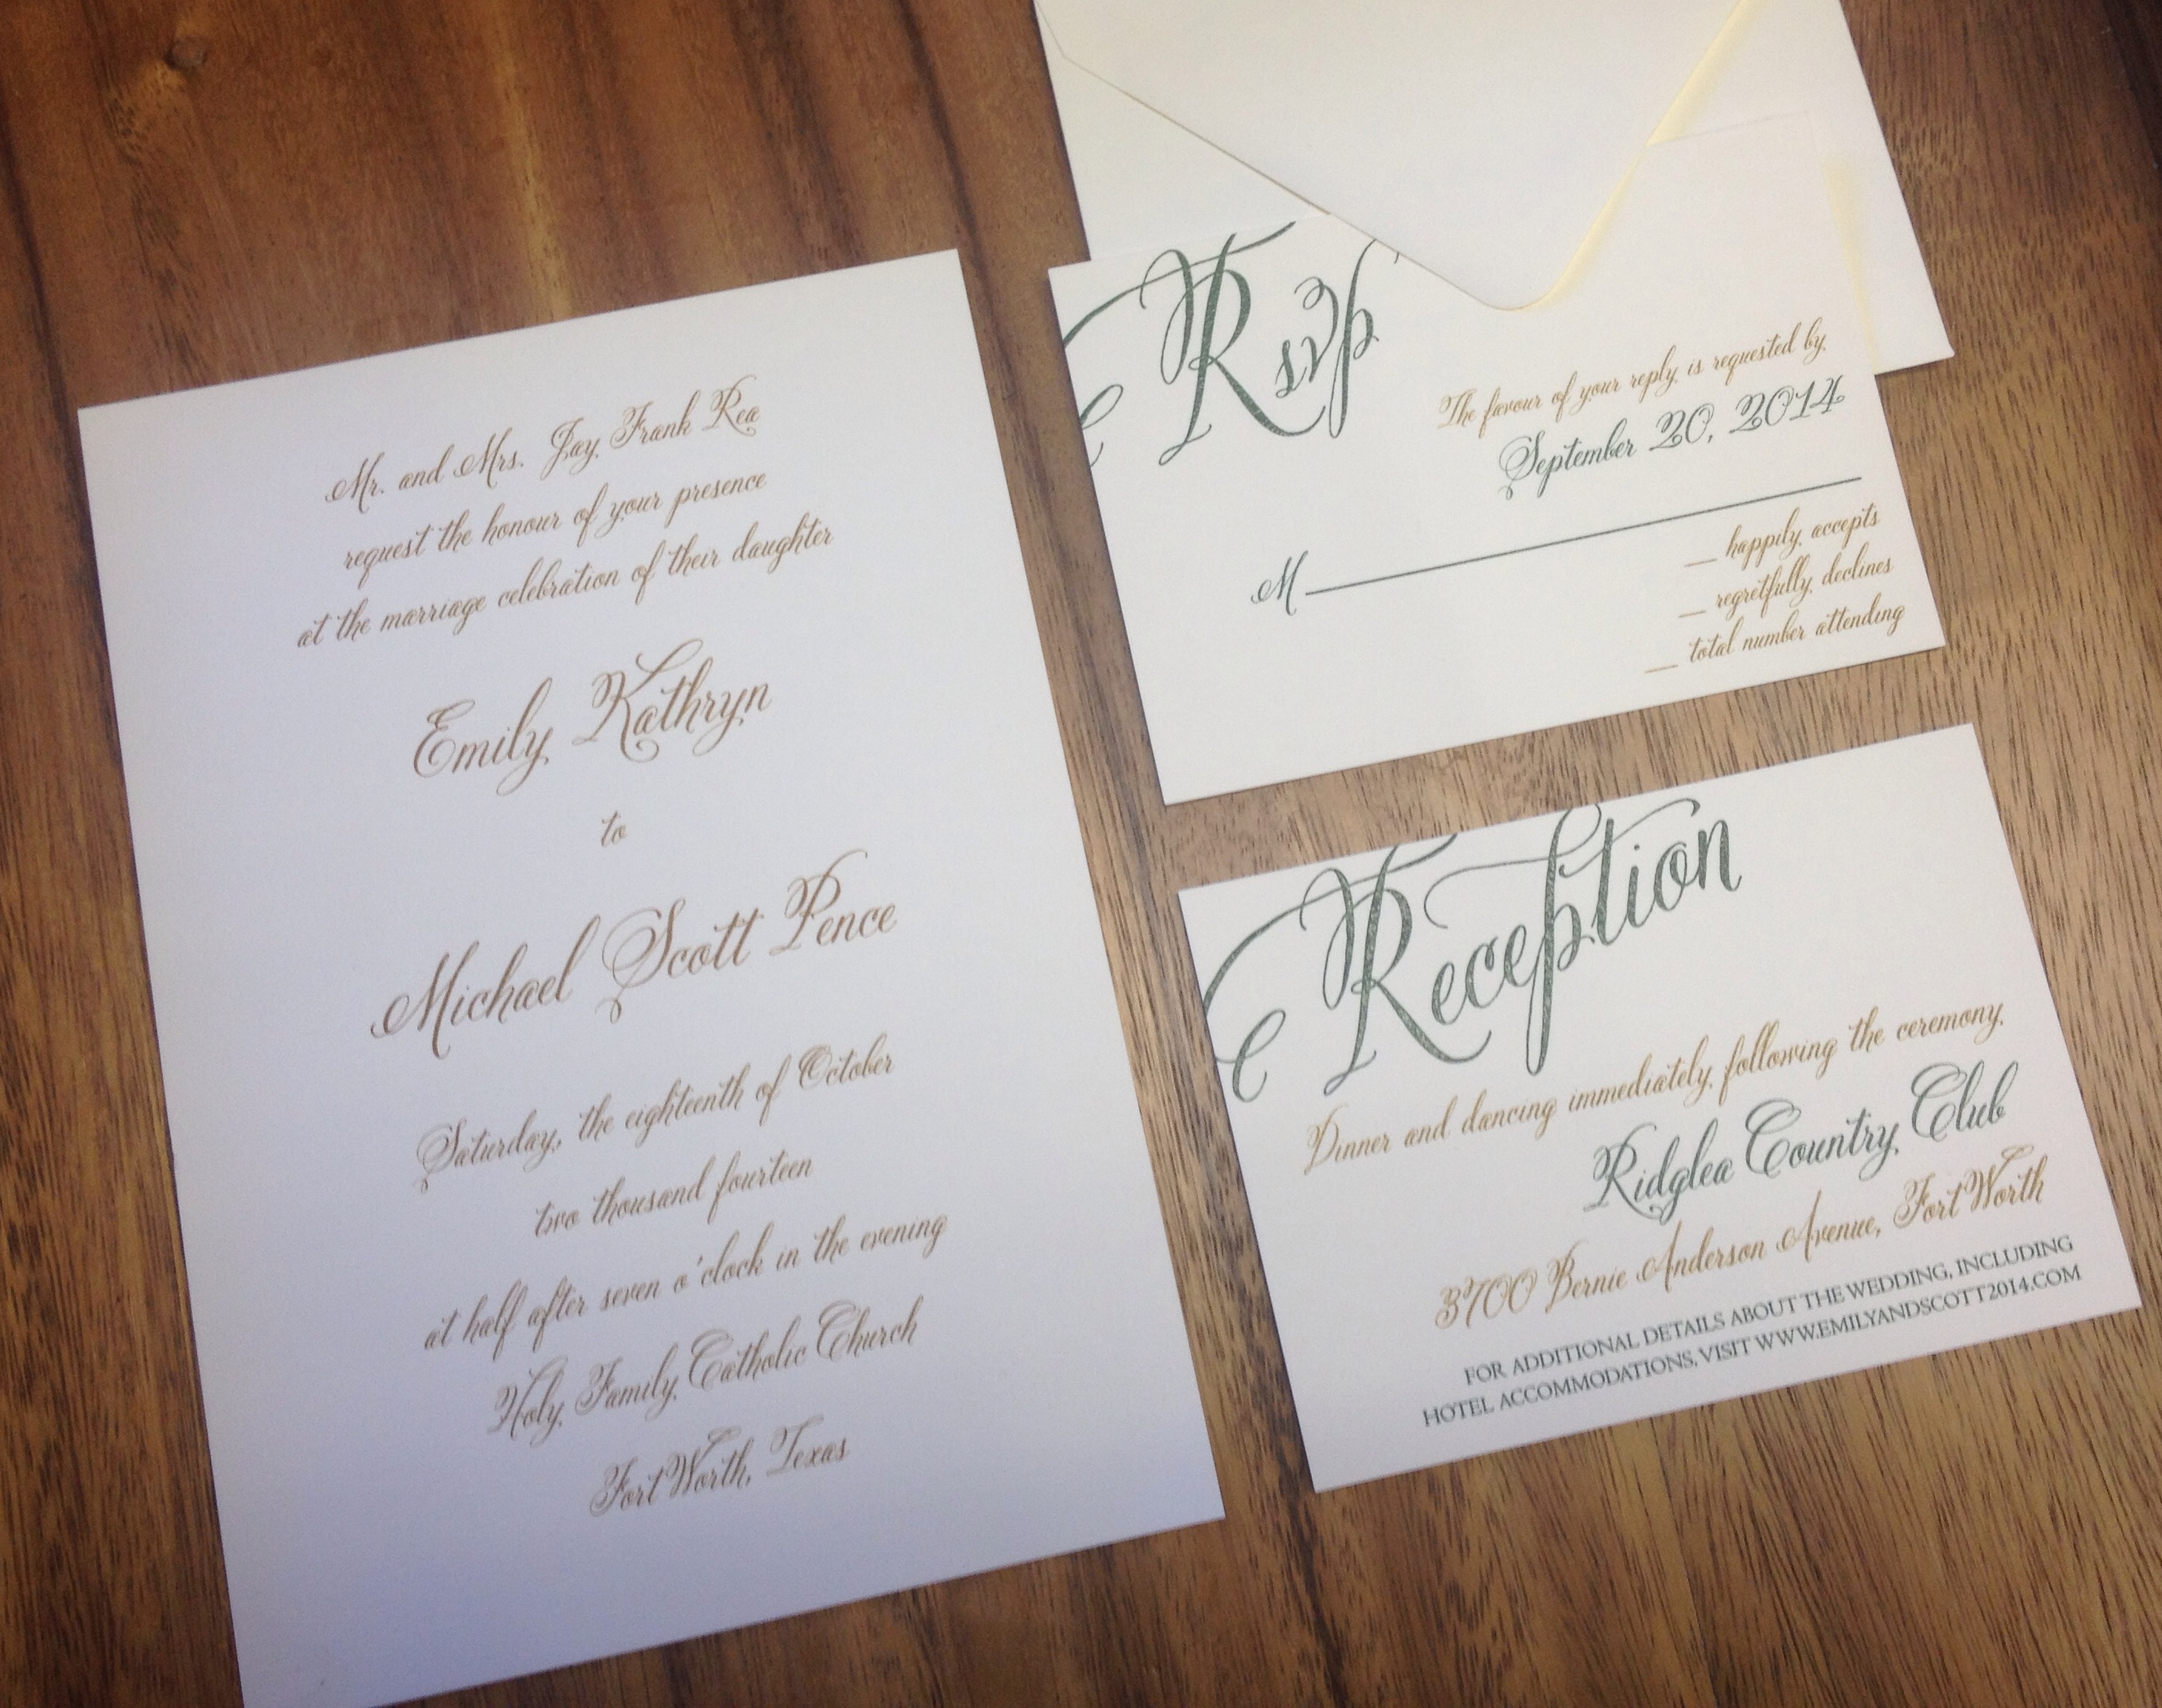 Mr. and Mrs. Jay Frank Rea
request the honour of your presence
at the marriage celebration of their daughter
Emily Kathryn
to
Michael Scott Pence
Saturday, the eighteenth of October
two thousand fourteen
at half after seven o'clock in the evening
Holy Family Catholic Church
Fort Worth, Texas
Rsvp
The favour of your reply is requested by
September 20, 2014
M
__ happily accepts
__ regretfully declines
__ total number attending
Reception
Dinner and dancing immediately following the ceremony
Ridglea Country Club
3700 Bernie Anderson Avenue, Fort Worth
FOR ADDITIONAL DETAILS ABOUT THE WEDDING, INCLUDING
HOTEL ACCOMMODATIONS, VISIT WWW.EMILYANDSCOTT2014.COM